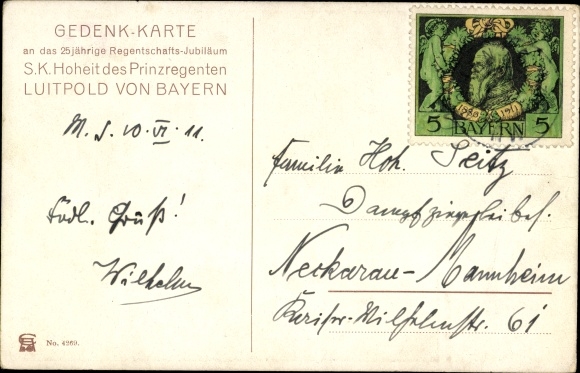 GEDENK-KARTE
an das 25jährige Regentschafts-Jubiläum
S.K. Hoheit des Prinzregenten
LUITPOLD VON BAYERN
M. 10. VI. 11.
Frdl. Gruß!
Wilhelm
No. 4269.
5 BAYERN 5
Familie Joh. Seitz
Dampfziegeleibes.
Neckarau-Mannheim
Kaiser-Wilhelmstr. 61